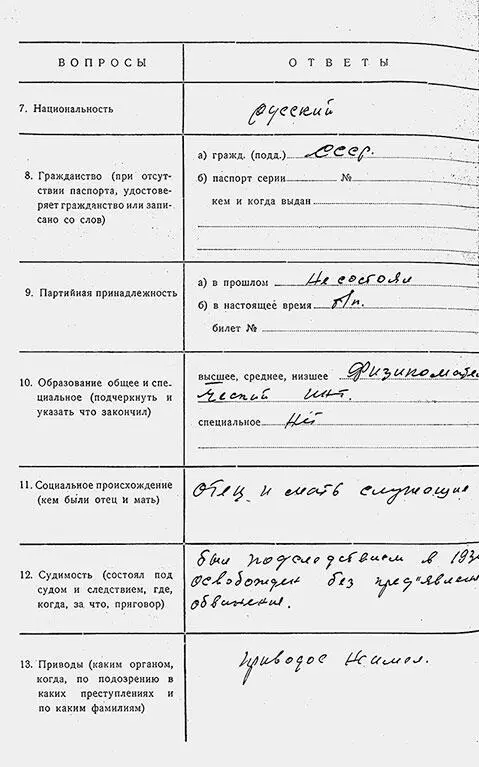 ВОПРОСЫ
ОТВЕТЫ
7. Национальность
русский
8. Гражданство (при отсут-
ствии паспорта, удостове-
ряет гражданство или запи-
сано со слов)
а) гражд. (подд.) СССР.
б) паспорт серии №
кем и когда выдан
9. Партийная принадлежность
а) в прошлом Не состоял
б) в настоящее время б/п.
билет №
10. Образование общее и спе-
циальное (подчеркнуть и
указать что закончил)
высшее, среднее, низшее Физикомате
ческий инт.
специальное Нет
11. Социальное происхождение
(кем были отец и мать)
Отец и мать служащие
12. Судимость (состоял под
судом и следствием, где,
когда, за что, приговор)
был под следствием в 193
освобожден без предъявлен
обвинения.
13. Приводы (каким органом,
когда, по подозрению в
каких преступлениях и
по каким фамилиям)
Приводов